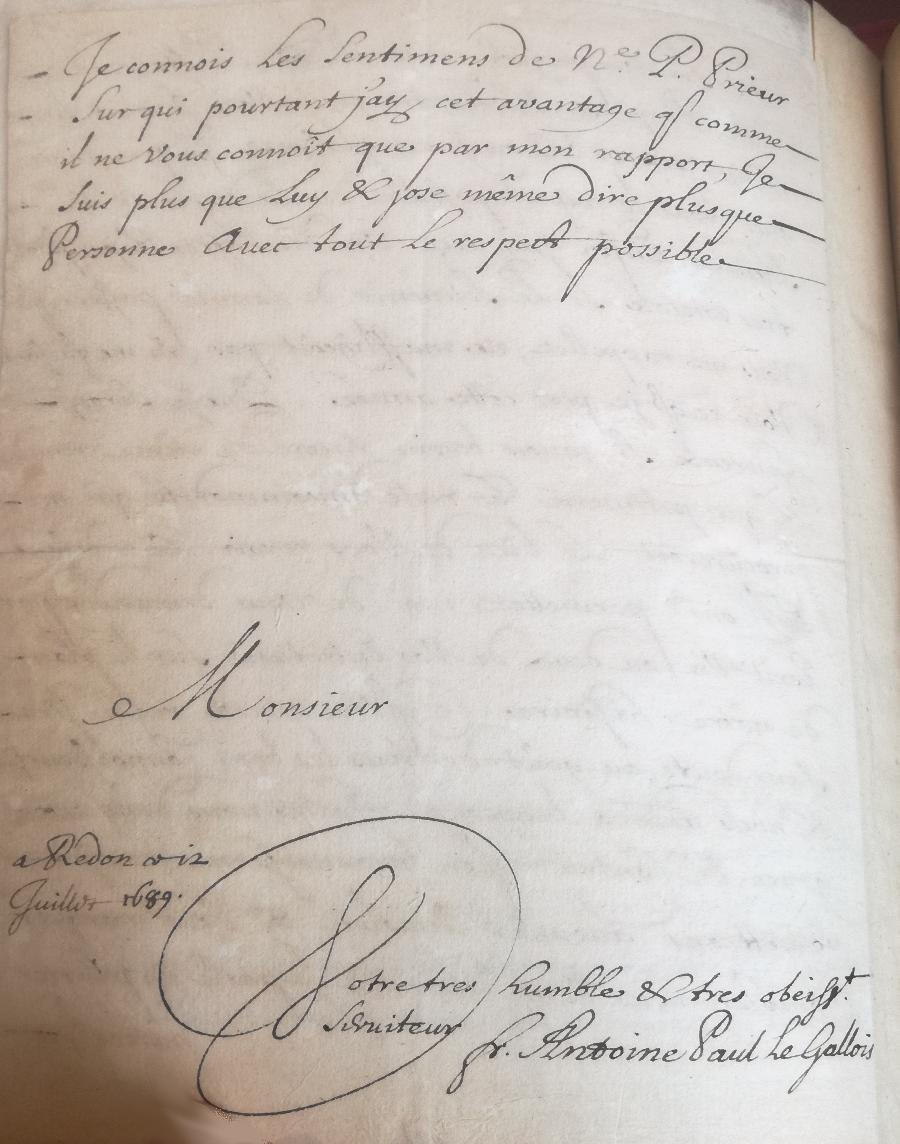 Je connois les sentimens de Ne. P. Prieur
sur qui pourtant j'ay cet avantage q comme
il ne vous connoît que par mon rapport, Je
suis plus que luy & jose même dire plus que
Personne Avec tout le respect possible
Monsieur
a Redon ce 12
Juillet 1689.
Votre tres humble & tres obeisst.
serviteur
fr. Antoine Paul Le Gallois